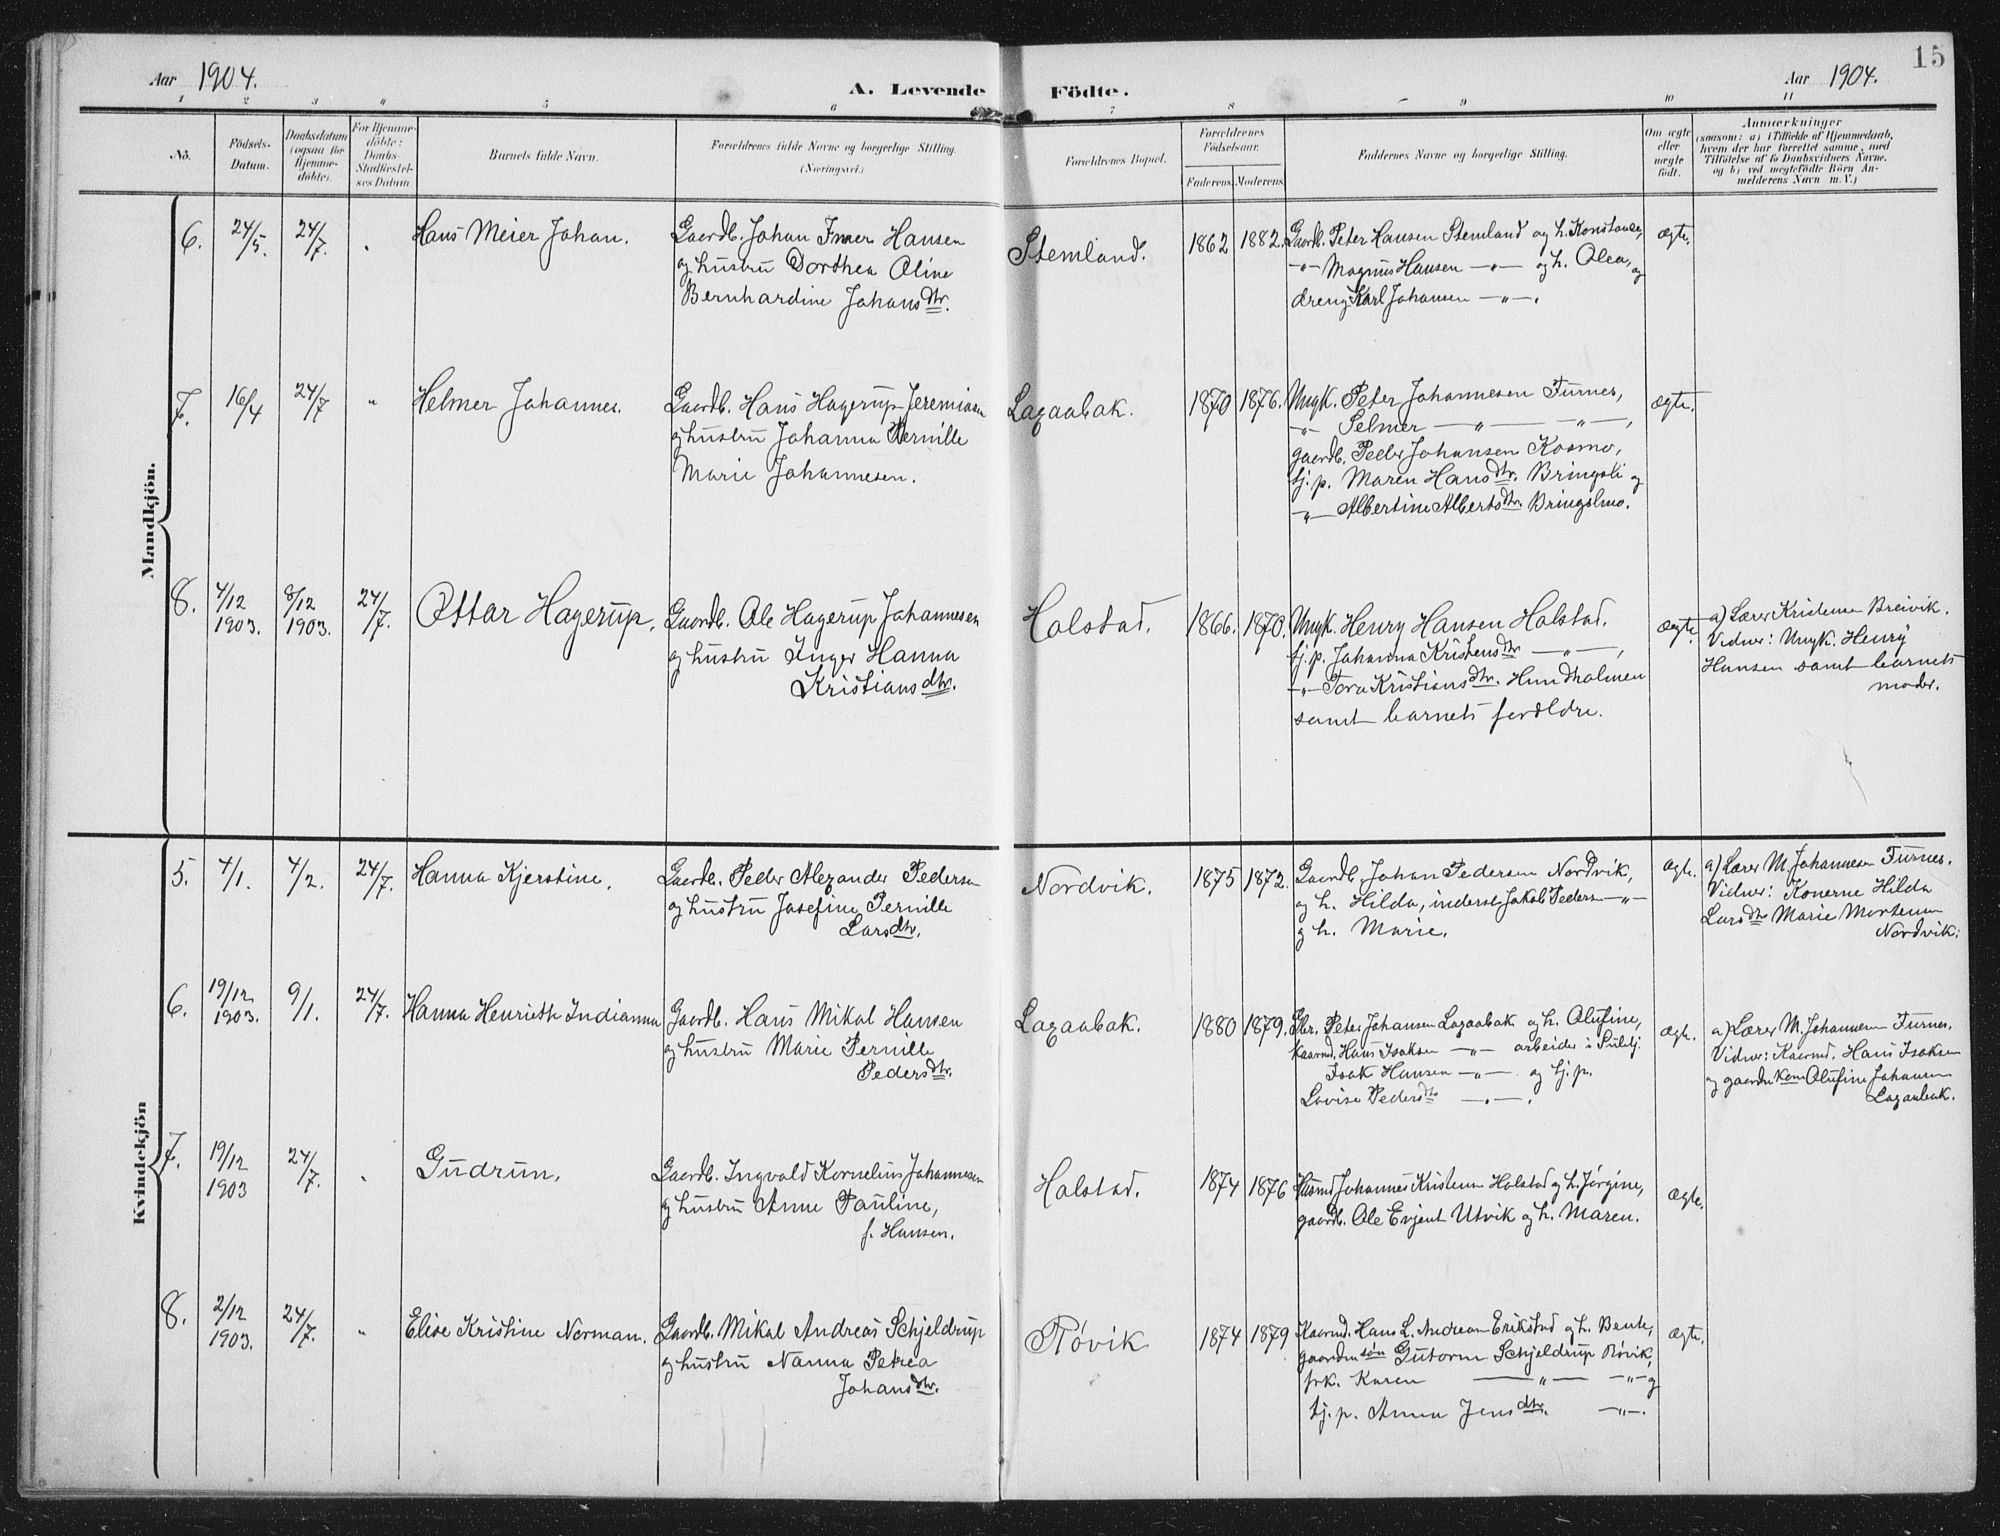 15
Aar 1904.
A. Levende Födte.
Aar 1904.
1 2 3 4 5 6 7 8 9 10 11
No.
Födsels-
Datum.
Daabsdatum
(ogsaa for
Hjemme-
døbte).
For Hjemme-
døbte:
Daabs-
Stadfæstel-
ses Datum
Barnets fulde Navn.
Forældrenes fulde Navne og borgerlige Stilling.
(Næringsvei.)
Forældrenes Bopæl.
Forældrenes
Födselsaar.
Faderens. Moderens.
Faddernes Navne og borgerlige Stilling.
Om ægte
eller
uægte
født.
Anmærkninger
(saasom: a) i Tilfælde af Hjemmedaab,
hvem der har forrettet samme, med
Tilföielse af to Daabsvidners Navne.
og b) ved uægtefödte Börn An-
melderens Navn m. V.)
Mandkjön.
6. 24/5. 24/7. " Hans Meier Johan.
Gaardb. Johan Hansen
og hustru Dorthea Oline
Bernhardine Johansdtr.
Stemland. 1862 1882.
Gaardb. Peter Hansen Stemland og h. Konstance,
-"- Magnus Hansen -"- og h. Olea, og
dreng Karl Johansen -"-.
ægte.
7. 16/4 24/7 " Helmer Johannes.
Gaardb. Hans Hagerup Jeremiasen
og hustru Johanna Pernille
Marie Johannesen.
Lagaabak. 1870 1876.
Ungk. Peter Johannesen Furnes,
-"- Selmer -"- -"-,
gaardb. Peder Johansen Kosmo,
tj. p. Maren Hansdtr. Bringsli og
-"- Albertine Albertsdtr. Bringslmo.
ægte.
8. 4/12 1903. 8/12 1903. 24/7. Ottar Hagerup.
Gaardb. Ole Hagerup Johannesen
og hustru Inger Hanna
Kristiansdtr.
Halstad. 1866. 1870.
Ungk. Henry Hansen Halstad.
tj. p. Johanna Kristensdtr -"-,
-"- Tora Kristiansdtr. Hundholmen
samt barnets forældre.
ægte.
a) Lærer Kristensen Breivik.
Vidner: Ungk. Henry
Hansen samt barnets
moder.
Kvindekjön
5. 4/1. 4/2. 24/7. Hanna Kjerstine.
Gaardb. Peder Alexander Pedersen
og hustru Josefine Pernille
Larsdtr.
Nordvik. 1875 1872.
Gaardb. Johan Pedersen Nordvik,
og h. Hilda, inderst Jakob Peders -"-
og h. Marie.
ægte.
a) Lærer M. Johannesen Furnes.
Vidner: Konerne Hilda
Larsdtr Marie Mortensen
Nordvik.
6. 19/12 1903. 9/1. 24/7. Hanna Henriette Indianna
Gaardb. Hans Mikal Hansen
og hustru Marie Pernille
Pedersdtr.
Lagaabak. 1880 1879.
Gbr. Peter Johansen Lagaabak og h. Olufine,
kaarmd. Hans Isaksen -"- arbeider i Sulitj.
Isak Hansen -"- og tj. p.
Lovise Pedersdtr -"-.
ægte.
a) Lærer M. Johannesen Furnes.
Vidner: Kaarmd. Hans Isaksen
og gaardm.kone Olufine Johansen
Lagaabak.
7. 19/12 1903 24/7. " Gudrun.
Gaardb. Ingvald Kornelius Johannesen
og hustru Anne Pauline,
f. Hansen.
Halstad. 1874 1876
Husmd Johannes Kristensen Halstad og h. Jørgine,
gaardb. Ole Evjent Utvik og h. Maren.
ægte.
8. 2/12 1903. 24/7. " Elise Kristine Norman.
Gaardb. Mikal Andreas Schjeldrup
og hustru Nanna Petrea
Johansdtr.
Røvik 1874 1879
Kaarmd. Hans L. Andreasen Erikstad og h. Bente,
gaardmsøn Gutorm Schjeldrup Røvik,
frk. Karen -"- -"- og
tj. p. Anna Jensdtr. -"-.
ægte.